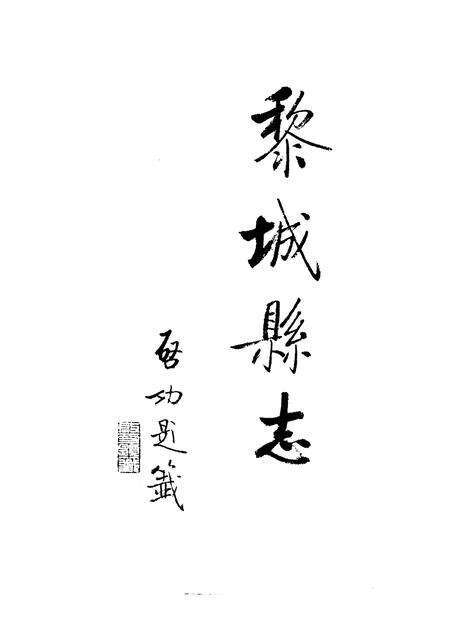 黎城縣志
啓功題籤